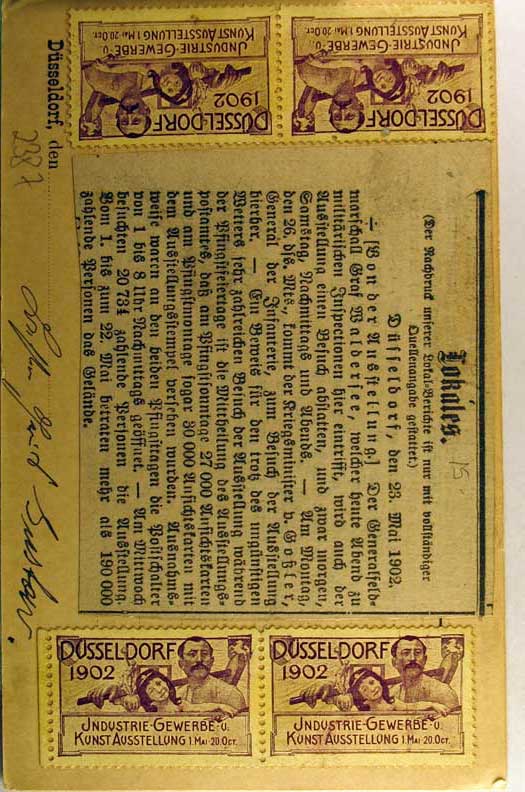 DÜSSELDORF
1902
JNDUSTRIE-GEWERBE-U.
KUNST AUSSTELLUNG 1.MAI-20.OCT.
DÜSSELDORF
1902
JNDUSTRIE-GEWERBE-U.
KUNST AUSSTELLUNG 1.MAI-20.OCT.
Lokales.
15
(Der Nachdruck unserer Lokal-Berichte ist nur mit vollständiger
Quellenangabe gestattet.)
Düsseldorf, den 23. Mai 1902.
÷ [Von der Ausstellung.] Der Generalfeld-
marschall Graf Waldersee, welcher heute Abend zu
militärischen Inspectionen hier eintrifft, wird auch der
Ausstellung einen Besuch abstatten, und zwar morgen,
Samstag, Nachmittags und Abends. — Am Montag,
den 26. dss. Mts., kommt der Kriegsminister v. Goßler,
General der Infanterie, zum Besuch der Ausstellung
hierher. — Ein Beweis für den trotz des ungünstigen
Wetters sehr zahlreichen Besuch der Ausstellung während
der Pfingstfeiertage ist die Mittheilung des Ausstellungs-
postamtes, daß am Pfingstsonntage 27 000 Ansichtskarten
und am Pfingstmontage sogar 30 000 Ansichtskarten mit
dem Ausstellungsstempel versehen wurden. Ausnahms-
weise waren an den beiden Pfingsttagen die Postschalter
von 1 bis 8 Uhr Nachmittags geöffnet. — Am Mittwoch
besuchten 20 734 zahlende Personen die Ausstellung.
Vom 1. bis zum 22. Mai betraten mehr als 190 000
zahlende Personen das Gelände.
Düsseldorf, den
2287
Gustav.
DÜSSELDORF
1902
JNDUSTRIE-GEWERBE-U.
KUNST AUSSTELLUNG 1.MAI-20.OCT.
DÜSSELDORF
1902
JNDUSTRIE-GEWERBE-U.
KUNST AUSSTELLUNG 1.MAI-20.OCT.